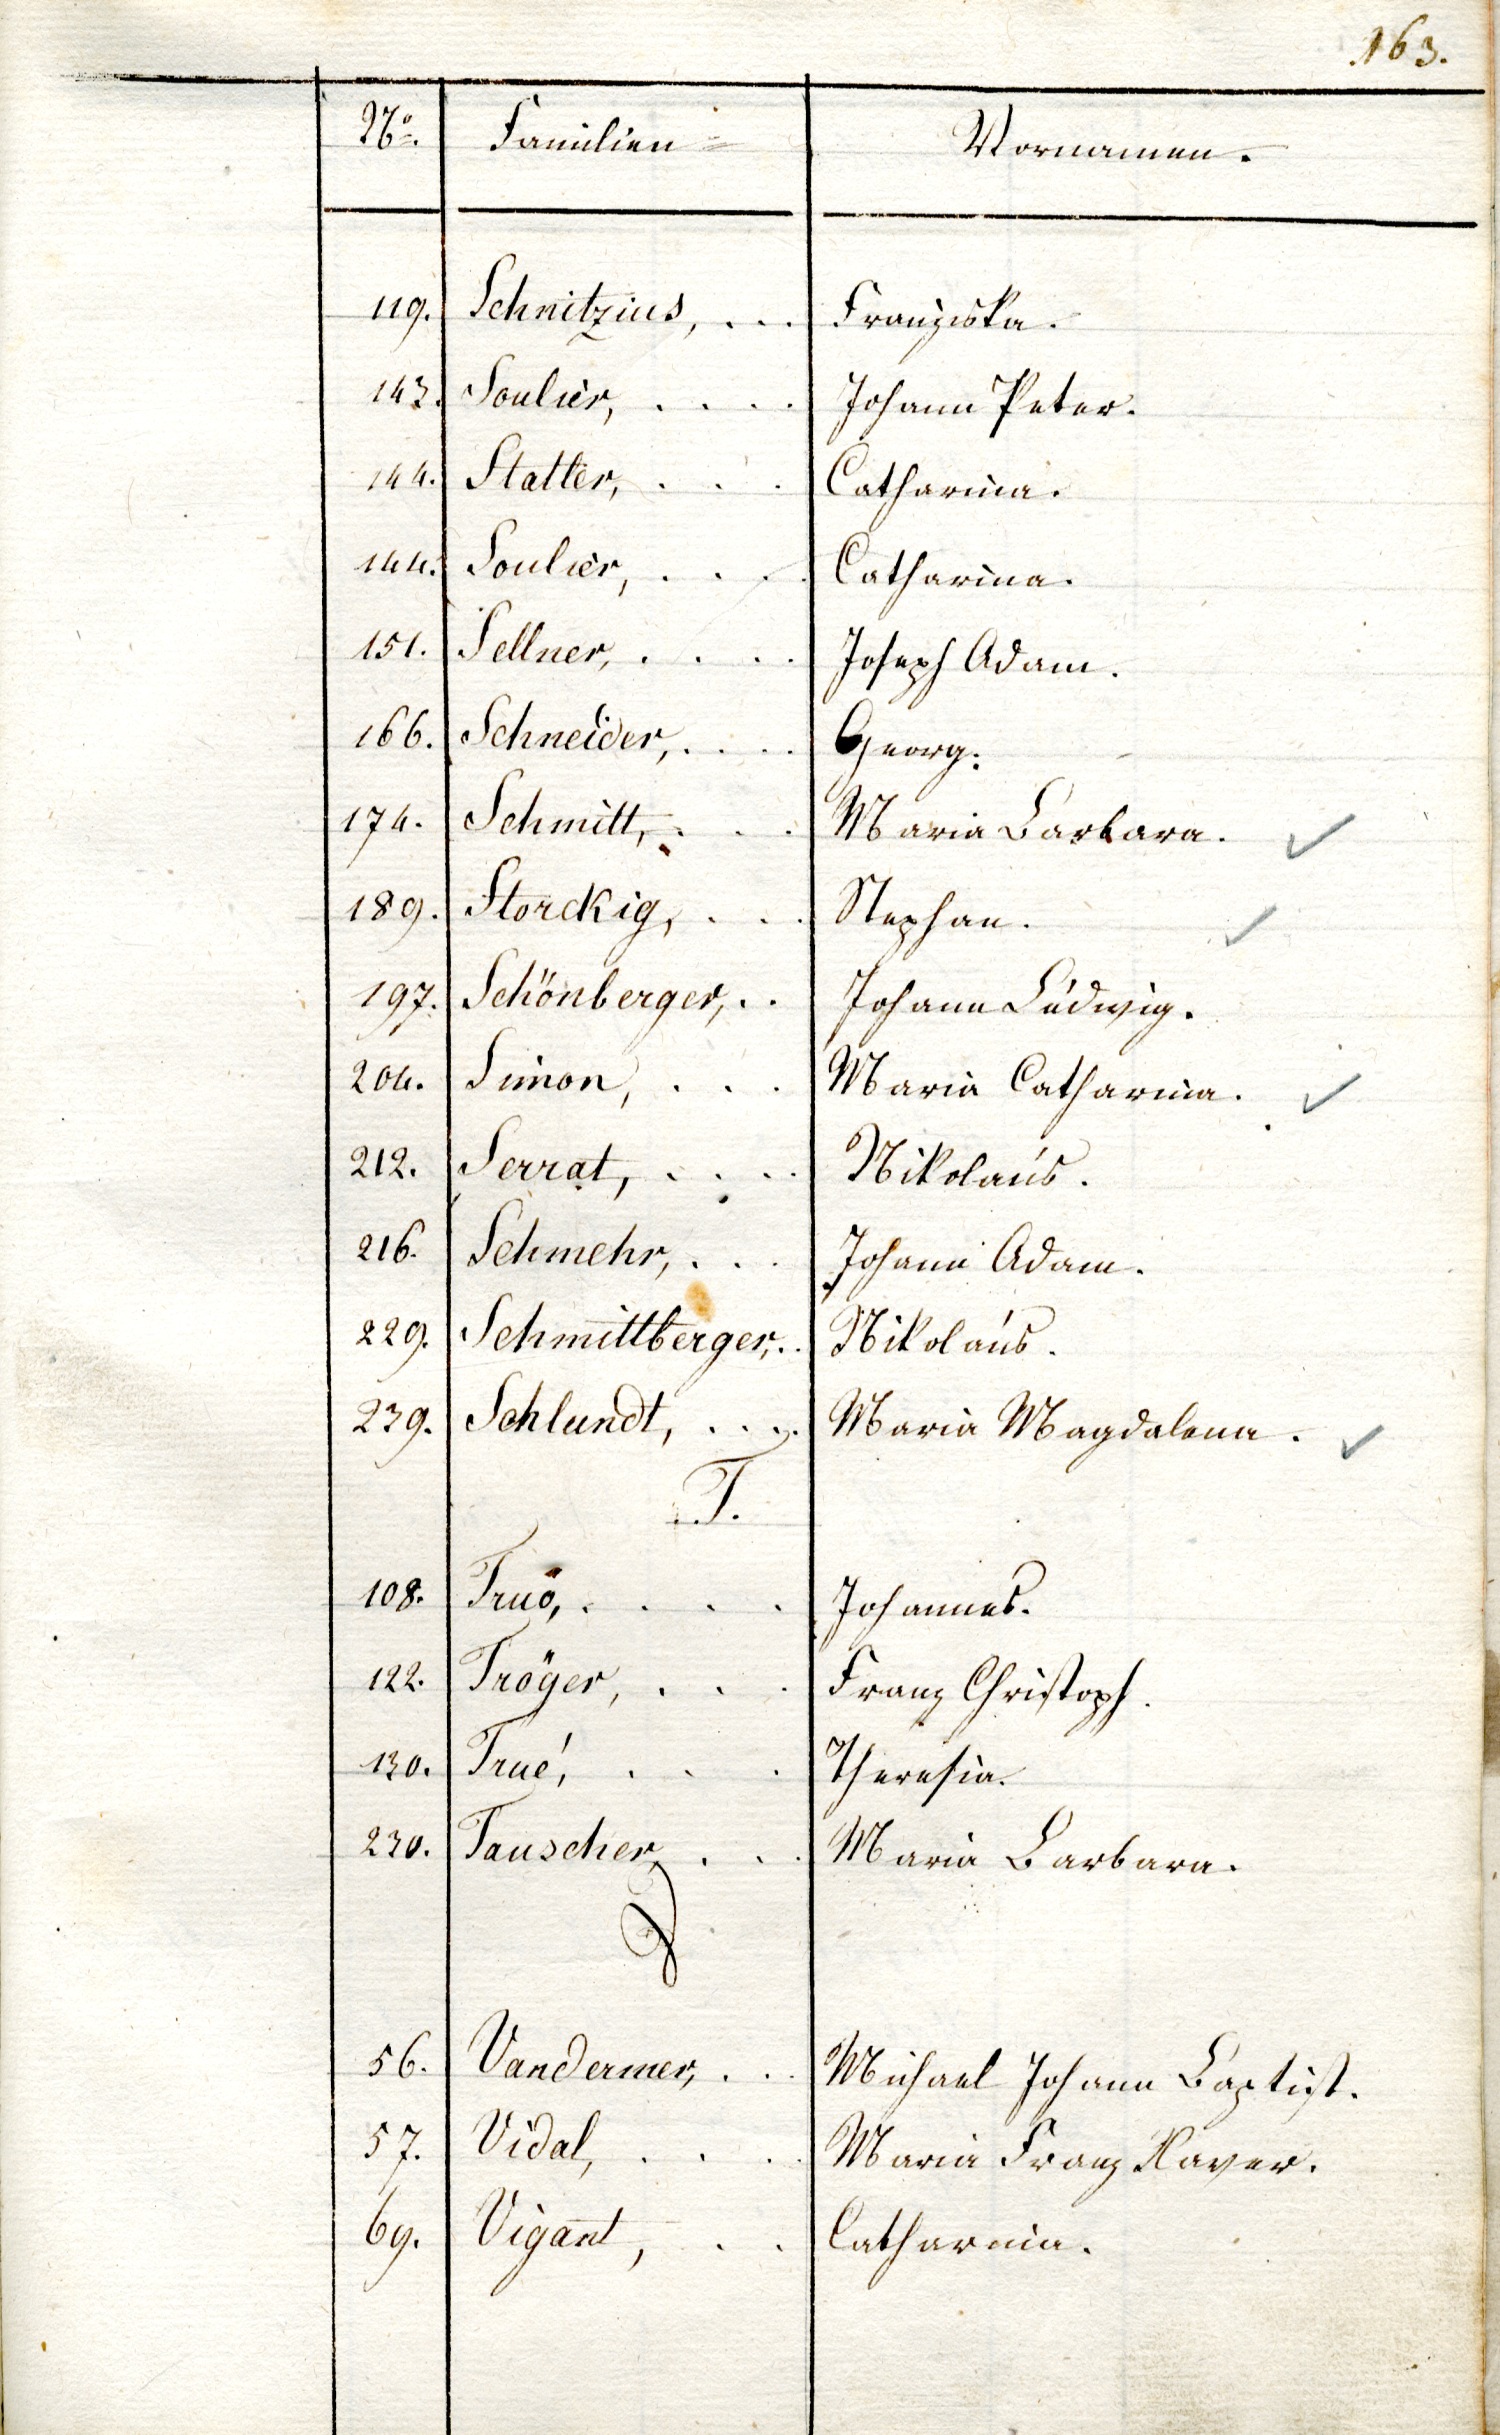 163.
No. Familien= Vornamen.
119. Schnitzius, ... Franziska.
143. Soulier, .... Johann Peter.
144. Statler, ... Catharina.
144. Soulier, ... Catharina.
151. Sellner, .... Joseph Adam.
166. Schneider, .... Georg.
174. Schmitt, ... Maria Barbara. ✓
189. Storckig, ... Stephan. ✓
197. Schönberger, .. Johann Ludwig.
204. Simon, ... Maria Catharina. ✓
212. Serrat, .... Nikolaus.
216. Schmehr, ... Johann Adam.
229. Schmittberger, .. Nikolaus.
239. Schlundt, .... Maria Magdalena. ✓
T.
108. .... Johannes.
122. Tröger, ... Franz Christoph.
130. Trué, ... Theresia.
230. Tauscher, ... Maria Barbara.
56. Vandermer, ... Michael Johann Baptist.
57. Vidal, ... Maria Franz Xaver.
69. Vigant, .. Catharina.